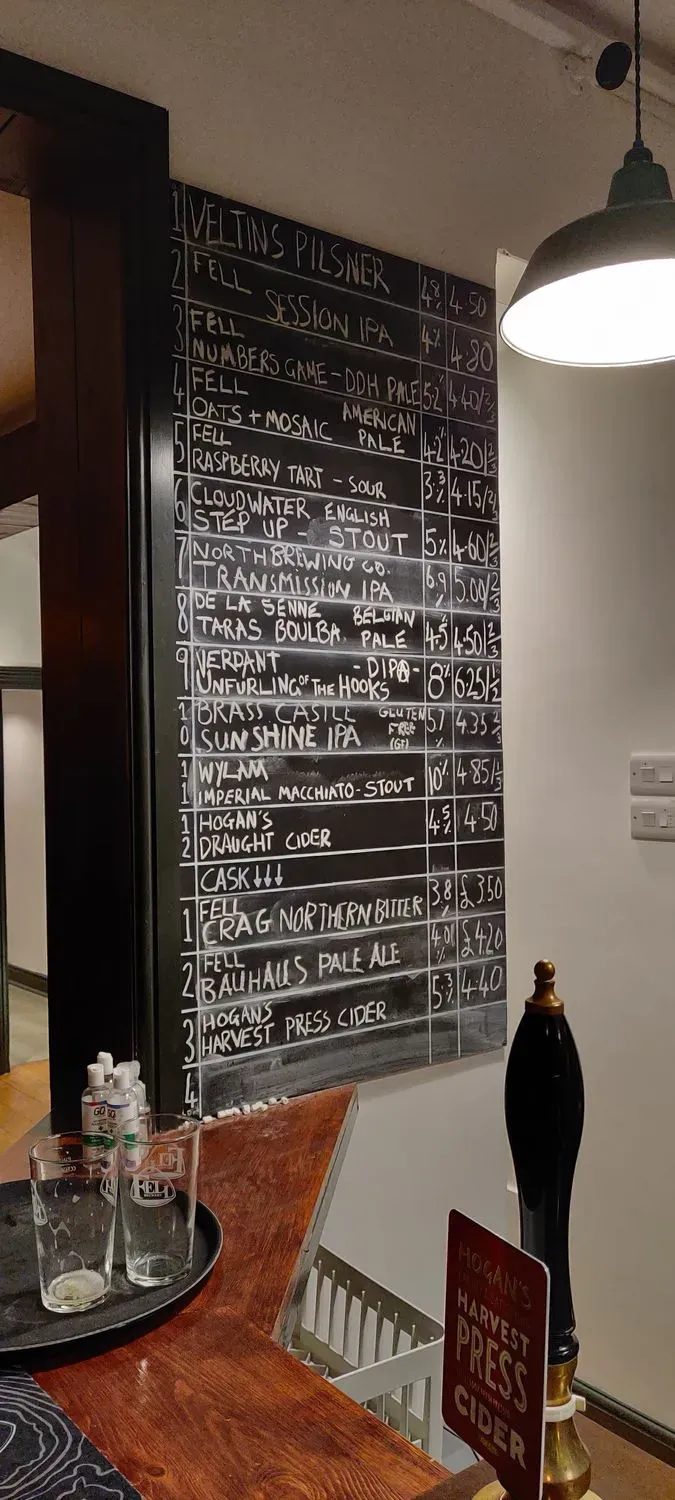 1 VELTINS PILSNER 4.8% 4.50
2 FELL
SESSION IPA 4% 4.80
3 FELL
NUMBERS GAME - DDH PALE 5.2% 4.40/2/3
4 FELL AMERICAN
OATS + MOSAIC PALE 4.2% 4.20/2/3
5 FELL
RASPBERRY TART - SOUR 3.3% 4.15/2/3
6 CLOUDWATER ENGLISH
STEP UP - STOUT 5% 4.60/2/3
7 NORTH BREWING CO.
TRANSMISSION IPA 6.9% 5.00/2/3
8 DE LA SENNE BELGIAN
TARAS BOULBA PALE 4.5% 4.50/2/3
9 VERDANT - DIPA -
UNFURLING OF THE HOOKS 8% 6.25/1/2
10 BRASS CASTLE GLUTEN
FREE
SUNSHINE IPA (GF) 5.7% 4.35 2/3
11 WYLAM
IMPERIAL MACCHIATO - STOUT 10% 4.85/1/3
12 HOGAN'S
DRAUGHT CIDER 4.5% 4.50
CASK ↓↓↓
1 FELL
CRAG NORTHERN BITTER 3.8% £3.50
2 FELL
BAUHAUS PALE ALE 4.0% £4.20
3 HOGAN'S
HARVEST PRESS CIDER 5.3% 4.40
4
FELL
BREWERY
HOGAN'S
HARVEST
PRESS
CIDER